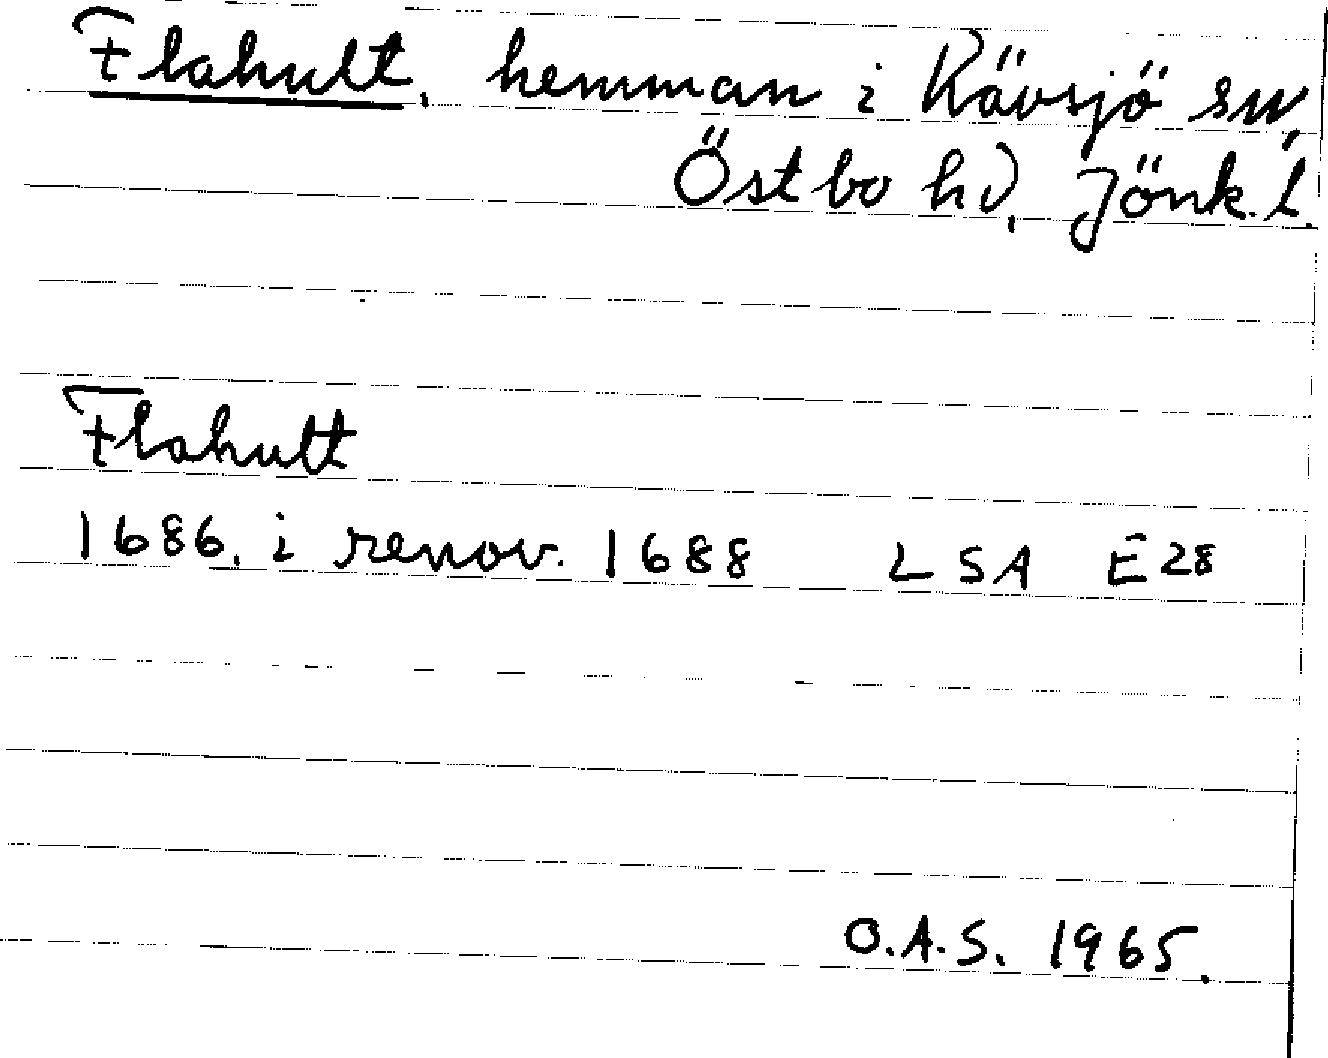 Flahult, hemman i Kävsjö sn,
Östbo hd, Jönk. l.
Flahult
1686. i renov. 1688 LSA E28
O.A.S. 1965.